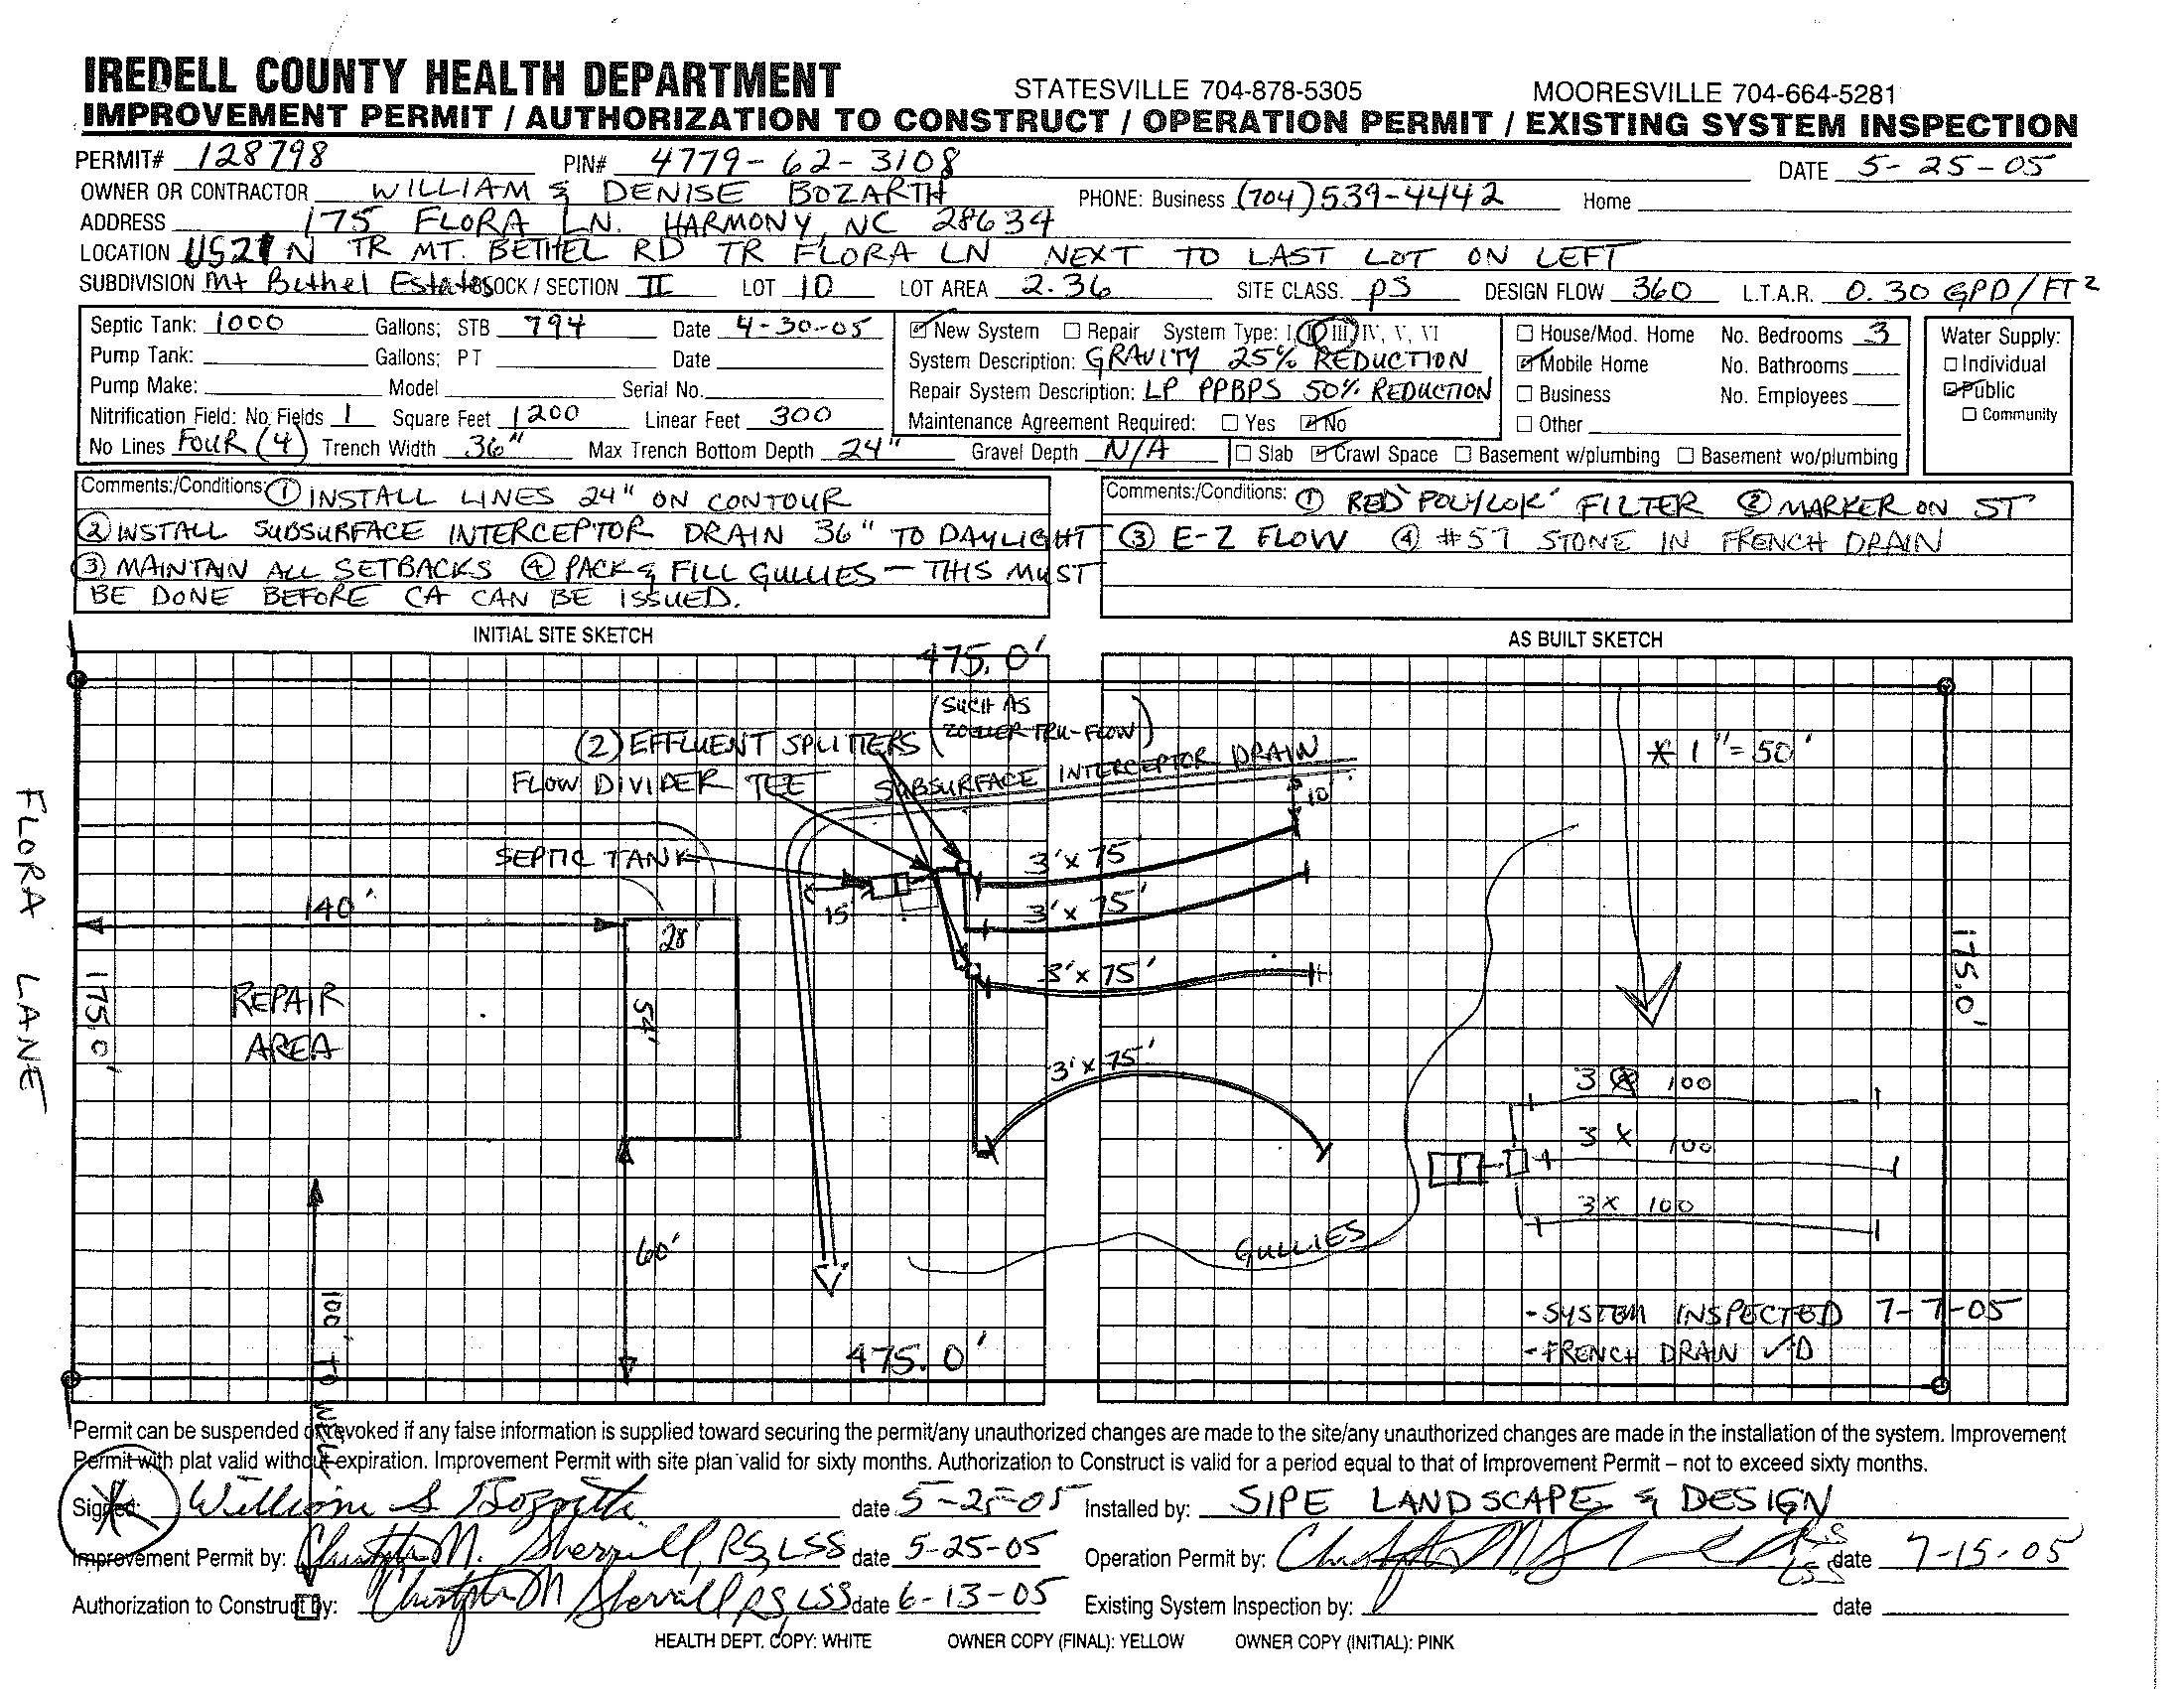 IREDELL COUNTY HEALTH DEPARTMENT STATESVILLE 704-878-5305 MOORESVILLE 704-664-5281
IMPROVEMENT PERMIT / AUTHORIZATION TO CONSTRUCT / OPERATION PERMIT / EXISTING SYSTEM INSPECTION
PERMIT# 128798 PIN# 4779-62-3108 DATE 5-25-05
OWNER OR CONTRACTOR WILLIAM & DENISE BOZARTH PHONE: Business (704) 539-4442 Home
ADDRESS 175 FLORA LN. HARMONY, NC 28634
LOCATION US21 N TR MT. BETHEL RD TR FLORA LN NEXT TO LAST LOT ON LEFT
SUBDIVISION Mt Bethel Estates BLOCK / SECTION II LOT 10 LOT AREA 2.36 SITE CLASS. PS DESIGN FLOW 360 L.T.A.R. 0.30 GPD/FT²
Septic Tank: 1000 Gallons; STB 794 Date 4-30-05
Pump Tank: Gallons; PT Date
Pump Make: Model Serial No.
Nitrification Field: No. Fields 1 Square Feet 1200 Linear Feet 300
No Lines FOUR (4) Trench Width 36" Max Trench Bottom Depth 24" Gravel Depth N/A
New System Repair System Type: I, II, III, IV, V, VI
System Description: GRAVITY 25% REDUCTION
Repair System Description: LP PPBPS 50% REDUCTION
Maintenance Agreement Required: Yes No
House/Mod. Home No. Bedrooms 3
Mobile Home No. Bathrooms
Business No. Employees
Other
Slab Crawl Space Basement w/plumbing Basement wo/plumbing
Water Supply:
Individual
Public
Community
Comments:/Conditions: ① INSTALL LINES 24" ON CONTOUR
② INSTALL SUBSURFACE INTERCEPTOR DRAIN 36" TO DAYLIGHT
③ MAINTAIN ALL SETBACKS ④ PACK & FILL GULLIES — THIS MUST
BE DONE BEFORE CA CAN BE ISSUED.
Comments:/Conditions: ① RED 'POLYLOK' FILTER ② MARKER ON ST
③ E-Z FLOW ④ #57 STONE IN FRENCH DRAIN
INITIAL SITE SKETCH
AS BUILT SKETCH
475.0'
(SUCH AS
ZOELLER TRU-FLOW)
(2) EFFLUENT SPLITTERS
FLOW DIVIDER TEE
SUBSURFACE INTERCEPTOR DRAIN
* 1"=50'
10'
SEPTIC TANK
3'x75'
15'
3'x75'
140'
28'
FLORA LANE
175.0'
REPAIR
AREA
54'
3'x75'
175.0'
3'x75'
3 x 100
3 x 100
3 x 100
60'
GULLIES
100' TO WELL
475.0'
- SYSTEM INSPECTED 7-7-05
- FRENCH DRAIN ✓D
Permit can be suspended or revoked if any false information is supplied toward securing the permit/any unauthorized changes are made to the site/any unauthorized changes are made in the installation of the system. Improvement
Permit with plat valid without expiration. Improvement Permit with site plan valid for sixty months. Authorization to Construct is valid for a period equal to that of Improvement Permit – not to exceed sixty months.
Signed: William S Bozarth date 5-25-05 Installed by: SIPE LANDSCAPE & DESIGN
Improvement Permit by: Christopher M. Sherrill, RS, LSS date 5-25-05 Operation Permit by: RS LSS date 7-15-05
Authorization to Construct by: Christopher M Sherrill RS, LSS date 6-13-05 Existing System Inspection by: date
HEALTH DEPT. COPY: WHITE OWNER COPY (FINAL): YELLOW OWNER COPY (INITIAL): PINK